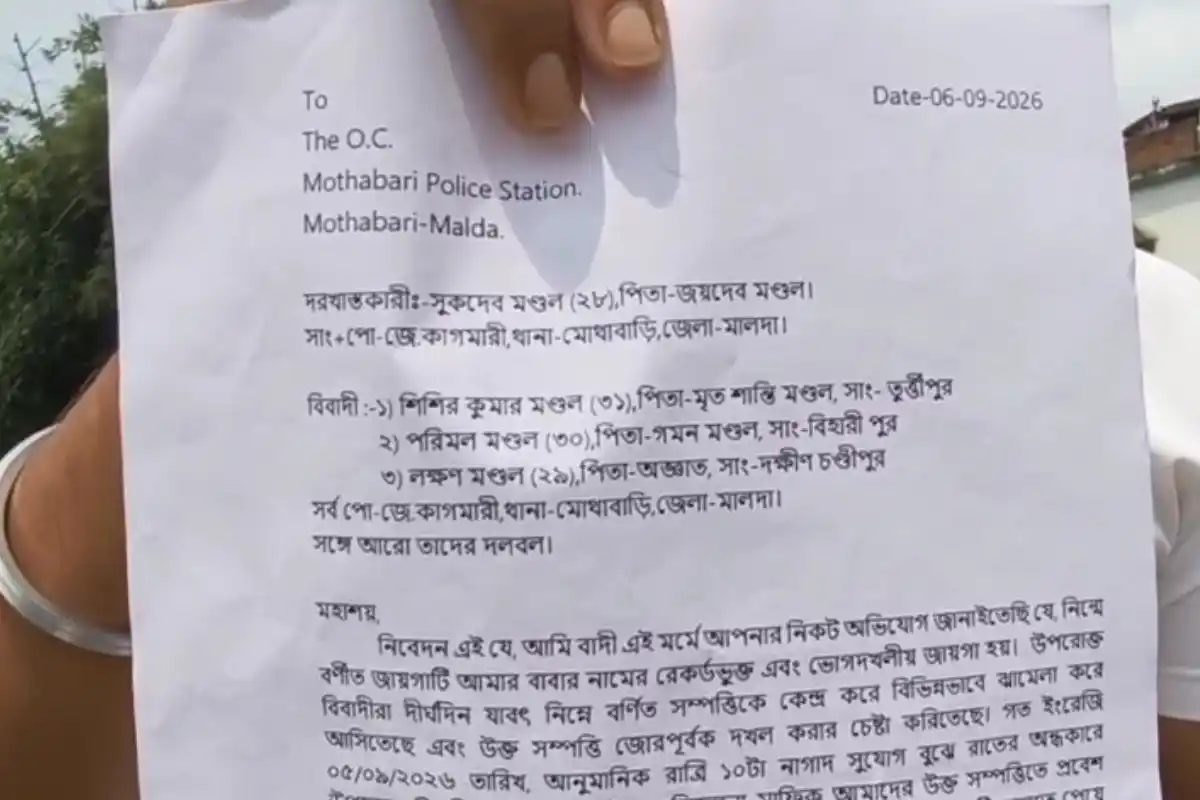 To
Date-06-09-2026
The O.C.
Mothabari Police Station.
Mothabari-Malda.
দরখাস্তকারীঃ-সুকদেব মণ্ডল (২৮),পিতা-জয়দেব মণ্ডল।
সাং+পো-জে.কাগমারী,থানা-মোথাবাড়ি,জেলা-মালদা।
বিবাদী :-১) শিশির কুমার মণ্ডল (৩১),পিতা-মৃত শান্তি মণ্ডল, সাং- তুর্ত্তীপুর
২) পরিমল মণ্ডল (৩০),পিতা-গমন মণ্ডল, সাং-বিহারী পুর
৩) লক্ষণ মণ্ডল (২৯),পিতা-অজ্ঞাত, সাং-দক্ষীণ চণ্ডীপুর
সর্ব পো-জে.কাগমারী,থানা-মোথাবাড়ি,জেলা-মালদা।
সঙ্গে আরো তাদের দলবল।
মহাশয়,
নিবেদন এই যে, আমি বাদী এই মর্মে আপনার নিকট অভিযোগ জানাইতেছি যে, নিন্মে
বর্ণীত জায়গাটি আমার বাবার নামের রেকর্ডভুক্ত এবং ভোগদখলীয় জায়গা হয়। উপরোক্ত
বিবাদীরা দীর্ঘদিন যাবৎ নিম্নে বর্ণিত সম্পত্তিকে কেন্দ্র করে বিভিন্নভাবে ঝামেলা করে
আসিতেছে এবং উক্ত সম্পত্তি জোরপূর্বক দখল করার চেষ্টা করিতেছে। গত ইংরেজি
০৫/০৯/২০২৬ তারিখ, আনুমানিক রাত্রি ১০টা নাগাদ সুযোগ বুঝে রাতের অন্ধকারে
মাফিক আমাদের উক্ত সম্পত্তিতে প্রবেশ